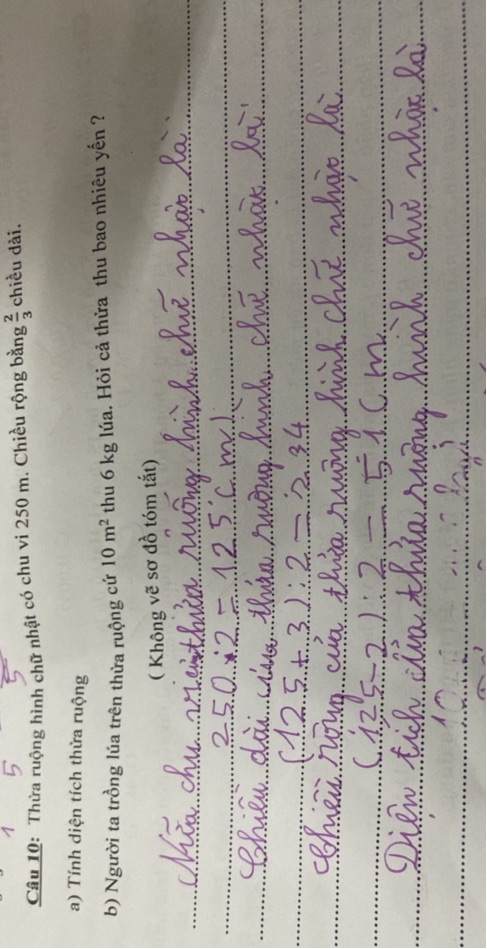 1 5 5
Câu 10: Thửa ruộng hình chữ nhật có chu vi 250 m. Chiều rộng bằng 2/3 chiều dài.
a) Tính diện tích thửa ruộng
b) Người ta trồng lúa trên thửa ruộng cứ 10 m² thu 6 kg lúa. Hỏi cả thửa thu bao nhiêu yến ?
( Không vẽ sơ đồ tóm tắt)
Nửa chu vi thửa ruộng hình chữ nhật là
250 : 2 = 125 ( m )
Chiều dài của thửa ruộng hình chữ nhật là
(125 + 3) : 2 =
Chiều rộng của thửa ruộng hình chữ nhật là
(125 - 2) : 2 = 51 ( m
Diện tích của thửa ruộng hình chữ nhật là